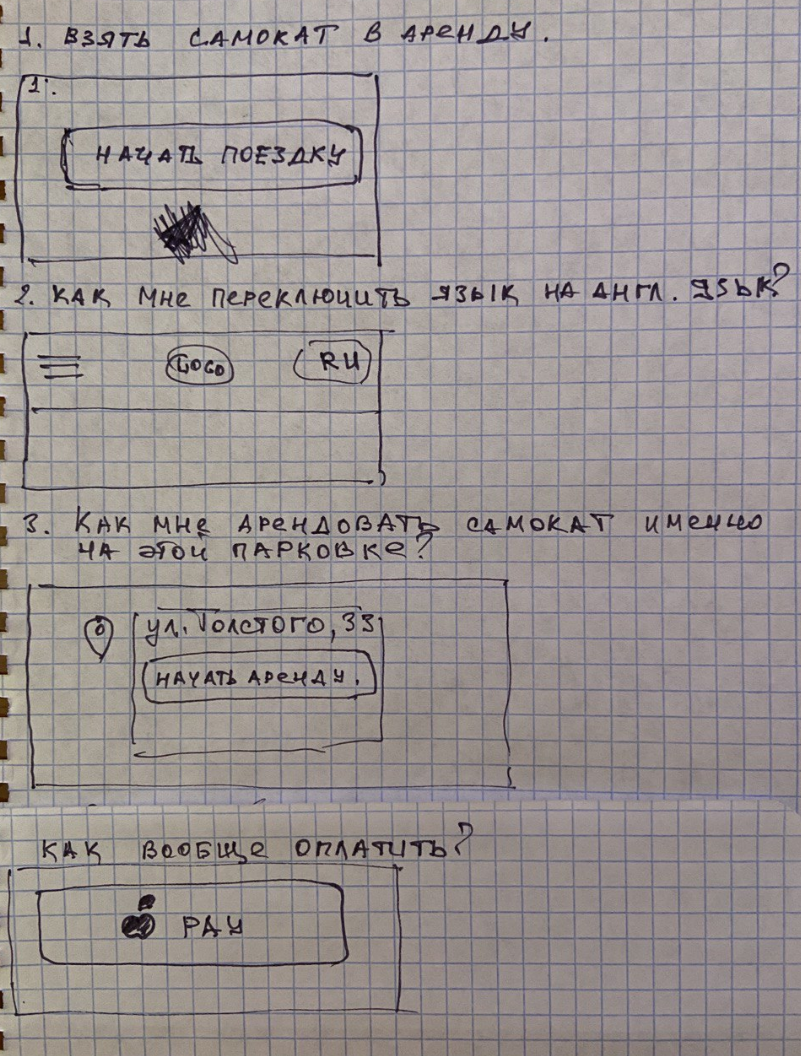 1. ВЗЯТЬ САМОКАТ В АРЕНДУ.
1.
НАЧАТЬ ПОЕЗДКУ
2. КАК МНЕ ПЕРЕКЛЮЧИТЬ ЯЗЫК НА АНГЛ. ЯЗЫК?
LOGO
RU
3. КАК МНЕ АРЕНДОВАТЬ САМОКАТ ИМЕННО
НА ЭТОЙ ПАРКОВКЕ?
ул. Толстого, 33
НАЧАТЬ АРЕНДУ.
КАК ВООБЩЕ ОПЛАТИТЬ?
PAY